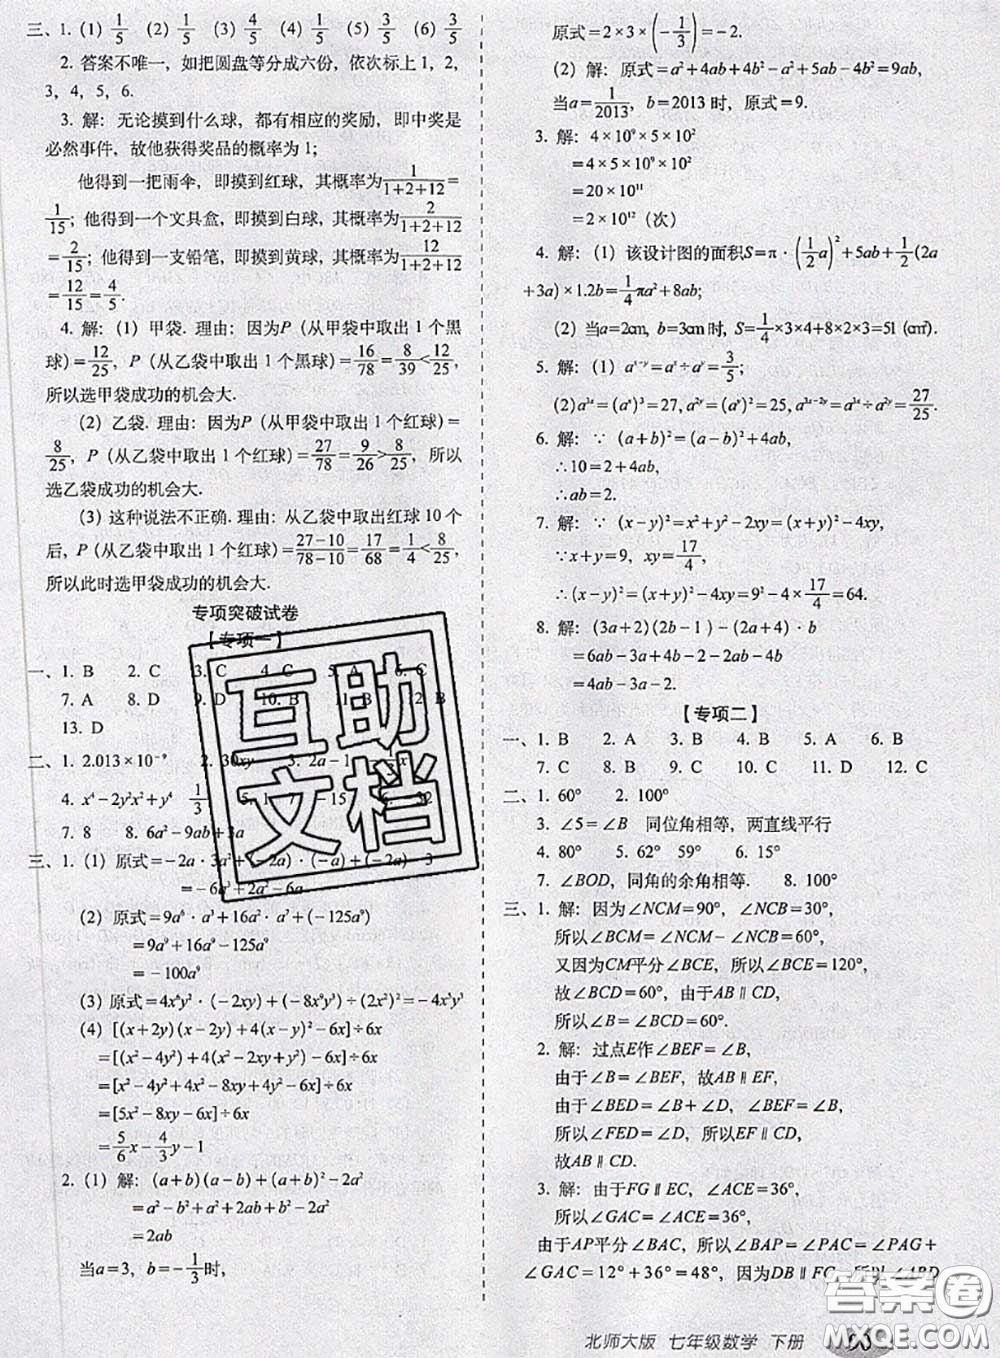 三、1. (1) 1/5 (2) 1/5 (3) 4/5 (4) 1/5 (5) 2/5 (6) 3/5
2. 答案不唯一，如把圆盘等分成六份，依次标上 1，2，
3，4，5，6.
3. 解：无论摸到什么球，都有相应的奖励，即中奖是
必然事件，故他获得奖品的概率为 1；
他得到一把雨伞，即摸到红球，其概率为 1/(1+2+12) =
1/15；他得到一个文具盒，即摸到白球，其概率为 2/(1+2+12)
= 2/15；他得到一支铅笔，即摸到黄球，其概率为 12/(1+2+12)
= 12/15 = 4/5.
4. 解：(1) 甲袋. 理由：因为P (从甲袋中取出 1 个黑
球) = 12/25，P (从乙袋中取出 1 个黑球) = 16/78 = 8/39 < 12/25，
所以选甲袋成功的机会大.
(2) 乙袋. 理由：因为P (从甲袋中取出 1 个红球) =
8/25，P (从乙袋中取出 1 个红球) = 27/78 = 9/26 > 8/25，所以
选乙袋成功的机会大.
(3) 这种说法不正确. 理由：从乙袋中取出红球 10 个
后，P (从乙袋中取出 1 个红球) = (27−10)/(78−10) = 17/68 = 1/4 < 8/25，
所以此时选甲袋成功的机会大.
专项突破试卷
【专项一】
一、1. B 2. C 3. C 4. C 5. A 6. C
7. A 8. D 9. D 10. B 11. B 12. B
13. D
二、1. 2.013×10⁻⁹ 2. 30xy 3. 2a−1
4. x⁴−2y²x²+y⁴ 1/3 5. 1 7−15 6. 32
7. 8 8. 6a²−9ab+3a
三、1. (1) 原式=−2a·3a²+(−2a)·(−a)+(−2a)·3
=−6a³+2a²−6a
(2) 原式=9a⁶·a³+16a²·a⁷+(−125a⁹)
=9a⁹+16a⁹−125a⁹
=−100a⁹
(3) 原式=4x⁶y²·(−2xy)+(−8x⁹y³)÷(2x²)=−4x⁵y³
(4) [(x+2y)(x−2y)+4(x−y)²−6x]÷6x
=[(x²−4y²)+4(x²−2xy+y²)−6x]÷6x
=[x²−4y²+4x²−8xy+4y²−6x]÷6x
=[5x²−8xy−6x]÷6x
=5/6x−4/3y−1
2. (1) 解：(a+b)(a−b)+(a+b)²−2a²
=a²−b²+a²+2ab+b²−2a²
=2ab
当a=3，b=−1/3时，
原式=2×3×(−1/3)=−2.
(2) 解：原式=a²+4ab+4b²−a²+5ab−4b²=9ab，
当a=1/2013，b=2013 时，原式=9.
3. 解：4×10⁹×5×10²
=4×5×10⁹×10²
=20×10¹¹
=2×10¹²（次）
4. 解：(1) 该设计图的面积S=π·(1/2a)²+5ab+1/2(2a
+3a)×1.2b=1/4πa²+8ab；
(2) 当a=2cm，b=3cm时，S=1/4×3×4+8×2×3=51 (cm²).
5. 解：(1) aˣ⁻ʸ=aˣ÷aʸ=3/5；
(2) a³ˣ=(aˣ)³=27，a²ʸ=(aʸ)²=25，a³ˣ⁻²ʸ=a³ˣ÷a²ʸ=27/25.
6. 解：∵ (a+b)²=(a−b)²+4ab，
∴10=2+4ab，
∴ab=2.
7. 解：∵ (x−y)²=x²+y²−2xy=(x+y)²−4xy，
∵x+y=9，xy=17/4，
∴(x−y)²=(x+y)²−4xy=9²−4×17/4=64.
8. 解：(3a+2)(2b−1)−(2a+4)·b
=6ab−3a+4b−2−2ab−4b
=4ab−3a−2.
【专项二】
一、1. B 2. A 3. B 4. B 5. A 6. B
7. C 8. D 9. C 10. D 11. D 12. C
二、1. 60° 2. 100°
3. ∠5=∠B 同位角相等，两直线平行
4. 80° 5. 62° 59° 6. 15°
7. ∠BOD，同角的余角相等. 8. 100°
三、1. 解：因为∠NCM=90°，∠NCB=30°，
所以∠BCM=∠NCM−∠NCB=60°，
又因为CM平分∠BCE，所以∠BCE=120°，
故∠BCD=60°，由于AB∥CD，
所以∠B=∠BCD=60°.
2. 解：过点E作∠BEF=∠B，
由于∠BEF=∠B，故AB∥EF，
由于∠BED=∠B+∠D，∠BEF=∠B，
所以∠FED=∠D，所以EF∥CD，
故AB∥CD.
3. 解：由于FG∥EC，∠ACE=36°，
所以∠GAC=∠ACE=36°，
由于AP平分∠BAC，所以∠BAP=∠PAC=∠PAG+
∠GAC=12°+36°=48°，因为DB∥FG，所以∠ABD
北师大版 七年级数学 下册 90
互助
文档
答案卷